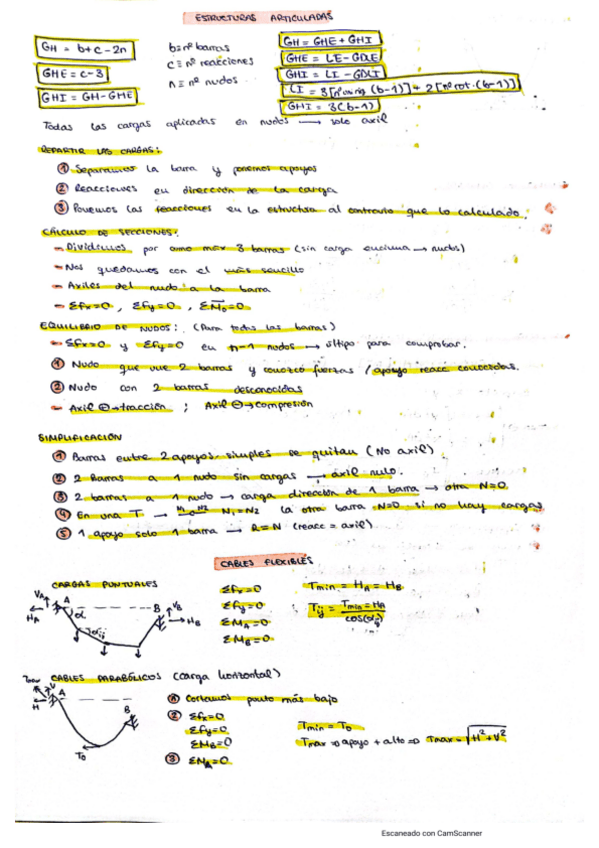 ESTRUCTURAS ARTICULADAS
GH = b+c-2n
GHE = c-3
GHI = GH-GHE
b≡nº barras
c≡nº reacciones
n≡nº nudos
GH = GHE + GHI
GHE = LE-GDLE
GHI = LI-GDLI
LI = 3[nº un rig (b-1)] + 2[nº rot.(b-1)]
GHI = 3(b-1)
Todas las cargas aplicadas en nudos → solo axil
REPARTIR LAS CARGAS:
① Separamos la barra y ponemos apoyos
② Reacciones en dirección de la carga
③ Ponemos las reacciones en la estructura al contrario que lo calculado.
CÁLCULO DE SECCIONES:
- Dividimos por como max 3 barras (sin carga encima → nudos)
- Nos quedamos con el más sencillo
- Axiles del nudo a la barra
- Σfx=0, Σfy=0, ΣM0=0
EQUILIBRIO DE NUDOS: (Para todas las barras)
- Σfx=0 y Σfy=0 en n-1 nudos → último para comprobar.
① Nudo que une 2 barras y conozco fuerzas / apoyo reacc conocidas.
② Nudo con 2 barras desconocidas
- Axil ⊕→tracción ; Axil ⊖→compresión
SIMPLIFICACIÓN
① Barras entre 2 apoyos simples se quitan (No axil)
② 2 Barras a 1 nudo sin cargas → axil nulo.
③ 2 barras a 1 nudo → carga dirección de 1 barra → otra N=0.
④ En una T → N1 N2 N1=N2 la otra barra N=0 si no hay cargas
⑤ 1 apoyo solo 1 barra → R=N (reacc = axil)
CABLES FLEXIBLES
CARGAS PUNTUALES
VA
A
HA
α
αij
B
VB
HB
Σfx=0
Σfy=0
ΣMA=0
ΣMB=0
Tmin = HA = HB
Tij = Tmin=HA / cos(αij)
CABLES PARABÓLICOS (carga horizontal)
Tmax
V
H
A
B
T0
① Cortamos punto más bajo
② Σfx=0
Σfy=0
ΣMB=0
③ ΣMA=0
Tmin = T0
Tmax ⇒ apoyo + alto ⇒ Tmax=√H²+V²
Escaneado con CamScanner